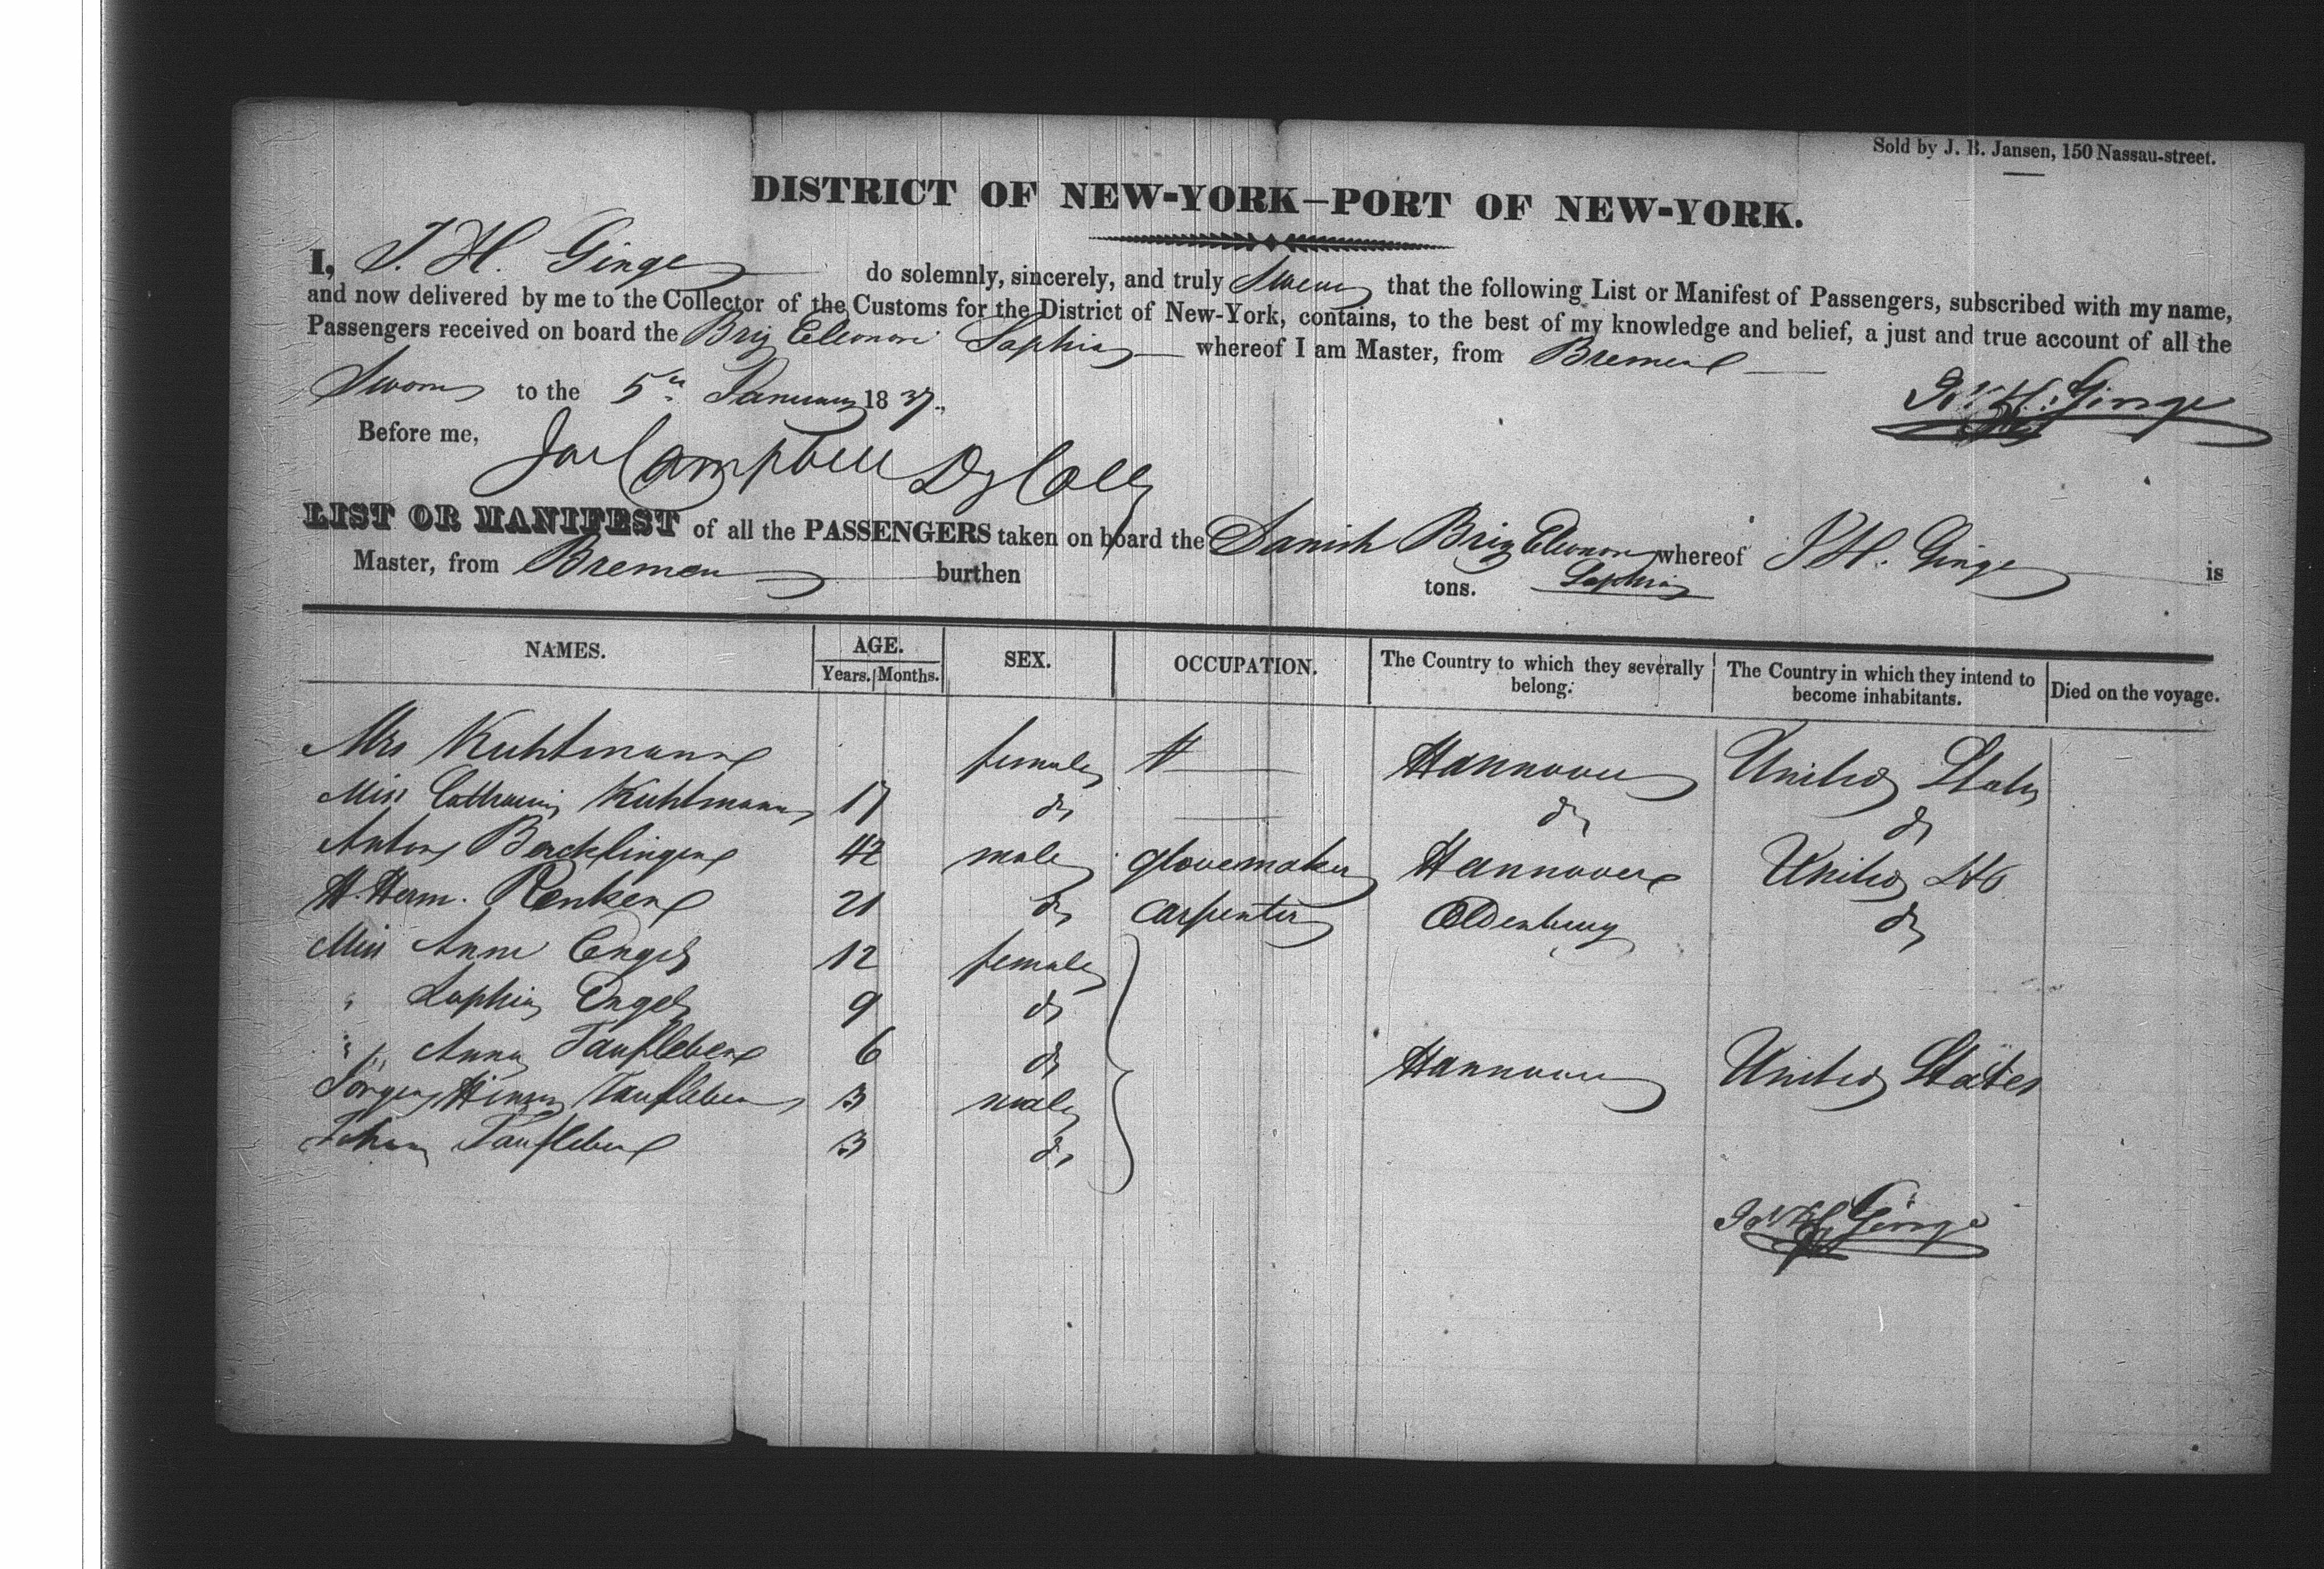 Sold by J. B. Jansen, 150 Nassau-street.
DISTRICT OF NEW-YORK—PORT OF NEW-YORK.
I, J. H. Ginge do solemnly, sincerely, and truly Swear that the following List or Manifest of Passengers, subscribed with my name,
and now delivered by me to the Collector of the Customs for the District of New-York, contains, to the best of my knowledge and belief, a just and true account of all the
Passengers received on board the Brig Eleonore Sophia whereof I am Master, from Bremen
Sworn to the 5th January 1837.
H. Ginge
Before me,
Campbell Dy Coll
LIST OR MANIFEST of all the PASSENGERS taken on board the Danish Brig Eleonore Sophia whereof J H. Ginge is
Master, from Bremen burthen tons.
NAMES. AGE. SEX. OCCUPATION. The Country to which they severally belong. The Country in which they intend to become inhabitants. Died on the voyage.
Years. Months.
Mrs Kuhtmann female Hannover United States
Miss Catharin Kuhtmann 17 do do do
Anton 42 male glovemaker Hannover United Sts
H. Herm. Renken 21 do carpenter Oldenburg do
Miss Anne Engel 12 female
" Sophia Engel 9 do
" Anna Taufleben 6 do Hannover United States
Jörgen Hinr Taufleben 3 male
Johan Taufleben 3 do
H Ginge